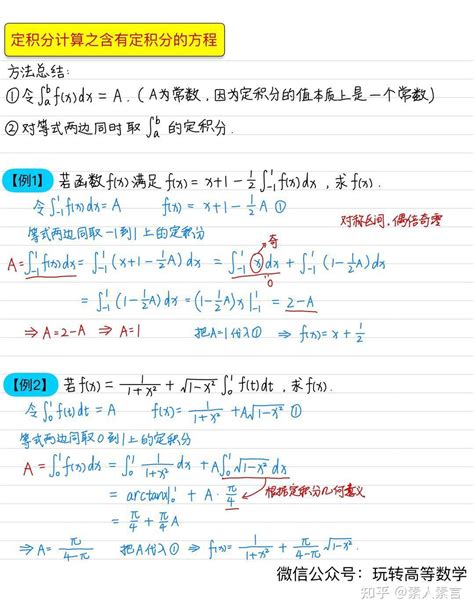 定积分计算之含有定积分的方程
方法总结:
① 令∫ₐᵇf(x)dx = A. (A为常数, 因为定积分的值本质上是一个常数)
② 对等式两边同时取∫ₐᵇ的定积分.
【例1】若函数f(x)满足f(x) = x+1 - 1/2∫₋₁¹f(x)dx, 求f(x).
令∫₋₁¹f(x)dx = A f(x) = x+1 - 1/2A ①
对称区间, 偶倍奇零
等式两边同取-1到1上的定积分
奇
A = ∫₋₁¹f(x)dx = ∫₋₁¹(x+1-1/2A)dx = ∫₋₁¹xdx + ∫₋₁¹(1-1/2A)dx
0
= ∫₋₁¹(1-1/2A)dx = (1-1/2A)x|₋₁¹ = 2-A
⇒ A=2-A ⇒ A=1 把A=1代入① ⇒ f(x) = x + 1/2
【例2】若f(x) = 1/(1+x²) + √(1-x²)∫₀¹f(t)dt, 求f(x).
令∫₀¹f(t)dt = A f(x) = 1/(1+x²) + A√(1-x²) ①
等式两边同取0到1上的定积分
A = ∫₀¹f(x)dx = ∫₀¹1/(1+x²)dx + A∫₀¹√(1-x²)dx
= arctanx|₀¹ + A·π/4 根据定积分几何意义
= π/4 + π/4A
⇒ A = π/(4-π) 把A代入① ⇒ f(x) = 1/(1+x²) + π/(4-π)√(1-x²).
微信公众号：玩转高等数学
知乎 @素人素言